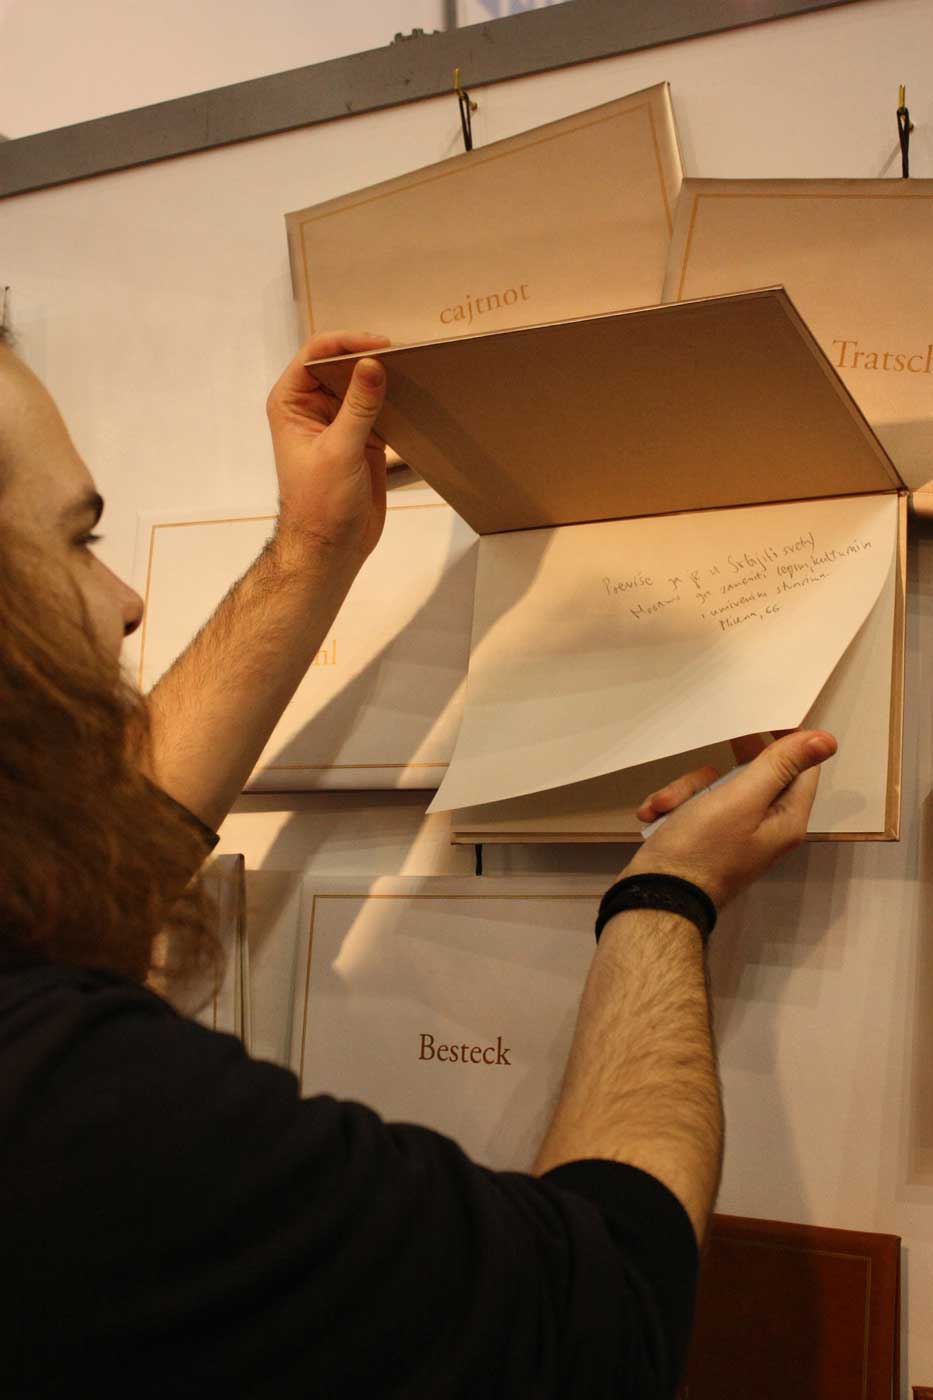 cajtnot
Tratsch
Previše ga je u Srbiji i svetu
Moramo ga zameniti lepim, kulturnim
i umivenim stvarima.
Milena, CG
Besteck